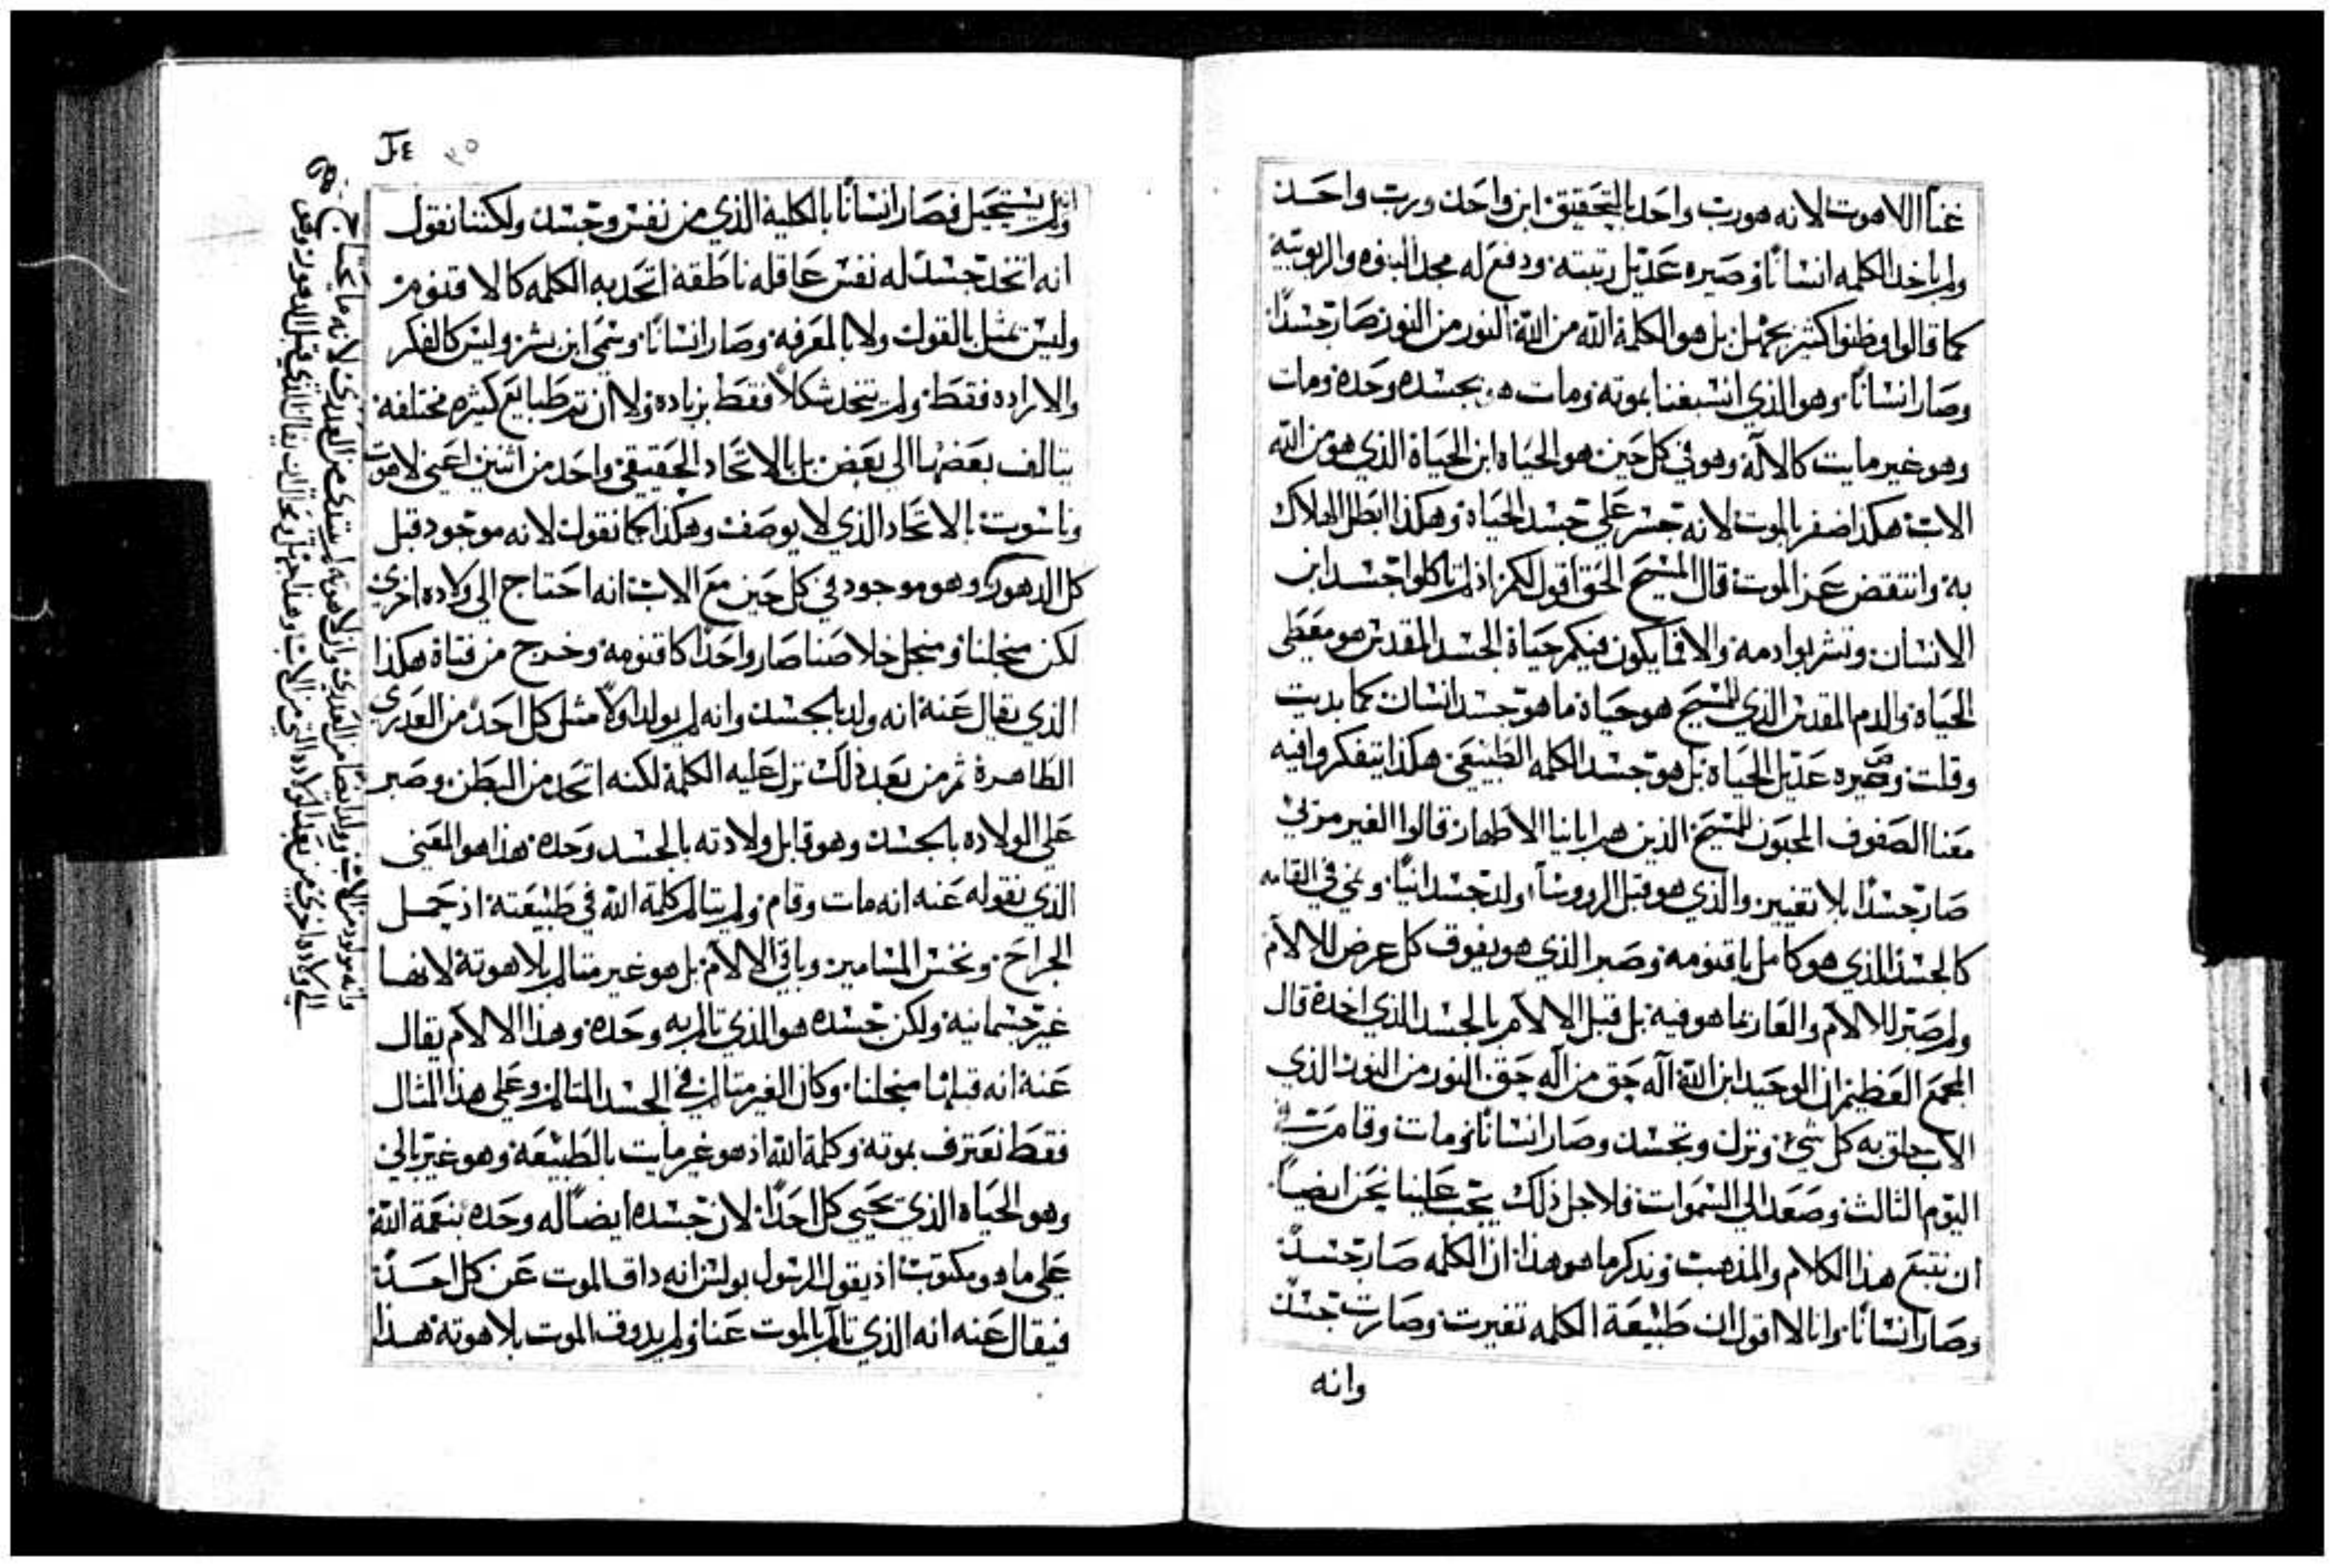 غنا اللاهوت لانه هو رب واحد بالتحقيق ابن واحد ورب واحد
ولم ياخد الكلمه انسانا وصيره عديل رتبته ودفع له مجد البنوه والربوبية
كما قالوا وظنوا كثير بجهل بل هو الكلمة الله من الله النور من النور صار جسدا
وصار انسانا وهو الذي انسبغنا بموته ومات هو بجسده وحده ومات
وهو غير مايت كالاله وهو في كل حين هو الحياه ابن الحياة الذي هو من الله
الاب هكذا ضفر بالموت لانه جسر علي جسد الحياة وهكذا ابطل الهلاك
به وانتقض عز الموت قال المسيح الحق اقول لكم اذ لم تاكلوا جسد ابن
الانسان وتشربوا دمه والا فما يكون فيكم حياة الجسد المقدس هو معطي
الحياه والدم المقدس الذي للمسيح هو حياة ما هو جسد انسان كما بديت
وقلت وصيره عديل الحياة بل هو جسد الكلمه الطبيعي هكذا يتفكروا فيه
معنا الصفوف المحبون للمسيح الذين هم ابائنا الاطهار قالوا الغير مرئي
صار جسدا بلا تغيير والذي هو قبل الرووسا ولد جسدانيا ونمي في القامه
كالجسد الذي هو كامل باقنومه وصبر الذي هو يفوق كل عرض للالام
ولم صبر للالام والعار بما هو فيه بل قبل الالام بالجسد الذي اخده قال
المجمع العظيم ان الوحيد ابن الله اله حق من اله حق النور من النور الذي
الاب خلق به كل شي ونزل وتجسد وصار انسانا ومات وقام في
اليوم الثالث وصعد الي السموات فلاجل ذلك يجب علينا نحن ايضا
ان نتبع هذا الكلام والمذهب ونذكر ما هو هذا ان الكلمه صار جسدا
وصار انسانا وانا لا اقول ان طبيعة الكلمه تغيرت وصارت جسدا
وانه
ولم يستحيل فصار انسانا بالكلية الذي من نفس وجسد ولكننا نقول
انه اتخد جسدا له نفس عاقله ناطقة اتحد به الكلمه كالاقنوم
وليس بمثل بالقول ولا بالمعرفه وصار انسانا وسمي ابن بشر وليس كالفكر
والاراده فقط ولم يتخد شكلا فقط بزياده ولا ان ثم طبايع كثيره مختلفه
يتالف بعضها الي بعض بل بالاتحاد الحقيقي واحد من اثنين اعني لاهوت
وناسوت بالاتحاد الذي لا يوصف وهكذا كما نقول لانه موجود قبل
كل الدهور وهو موجود في كل حين مع الاب انه احتاج الي ولاده اخري
لكن من اجلنا ومن اجل خلاصنا صار واحدا كاقنومه وخرج من فتاة هكذا
الذي يقال عنه انه ولد بالجسد وانه لم يولد اولا مثل كل احد من العدري
الطاهرة ثم من بعد ذلك نزل عليه الكلمة لكنه اتحد من البطن وصبر
علي الولاده بالجسد وهو قابل ولادته بالجسد وحده هذا هو المعني
الذي نقوله عنه انه مات وقام ولم يتالم كلمة الله في طبيعته اذ حمل
الجراح ونخس المسامير وباقي الالام بل هو غير متالم بلاهوته لانها
غير جسمانيه ولكن جسده هو الذي تالم به وحده وهذا الالام يقال
عنه انه قبلها من اجلنا وكان الغير متالم في الجسد المتالم وعلي هذا المثال
فقط نعترف بموته وكلمة الله اذ هو غير مايت بالطبيعة وهو غير بالي
وهو الحياه الذي يحيي كل احدا لان جسده ايضا له وحده بنعمة الله
علي ما هو مكتوب اذ يقول الرسول بولس انه داق الموت عن كل احد
فيقال عنه انه الذي تالم بالموت عنا ولم يدوق الموت بلاهوته هذا
ما يحتاج لانه لم يبتدي من العدري وان لاهوته ايضا من العدري ولد
وانه مولود من الاب